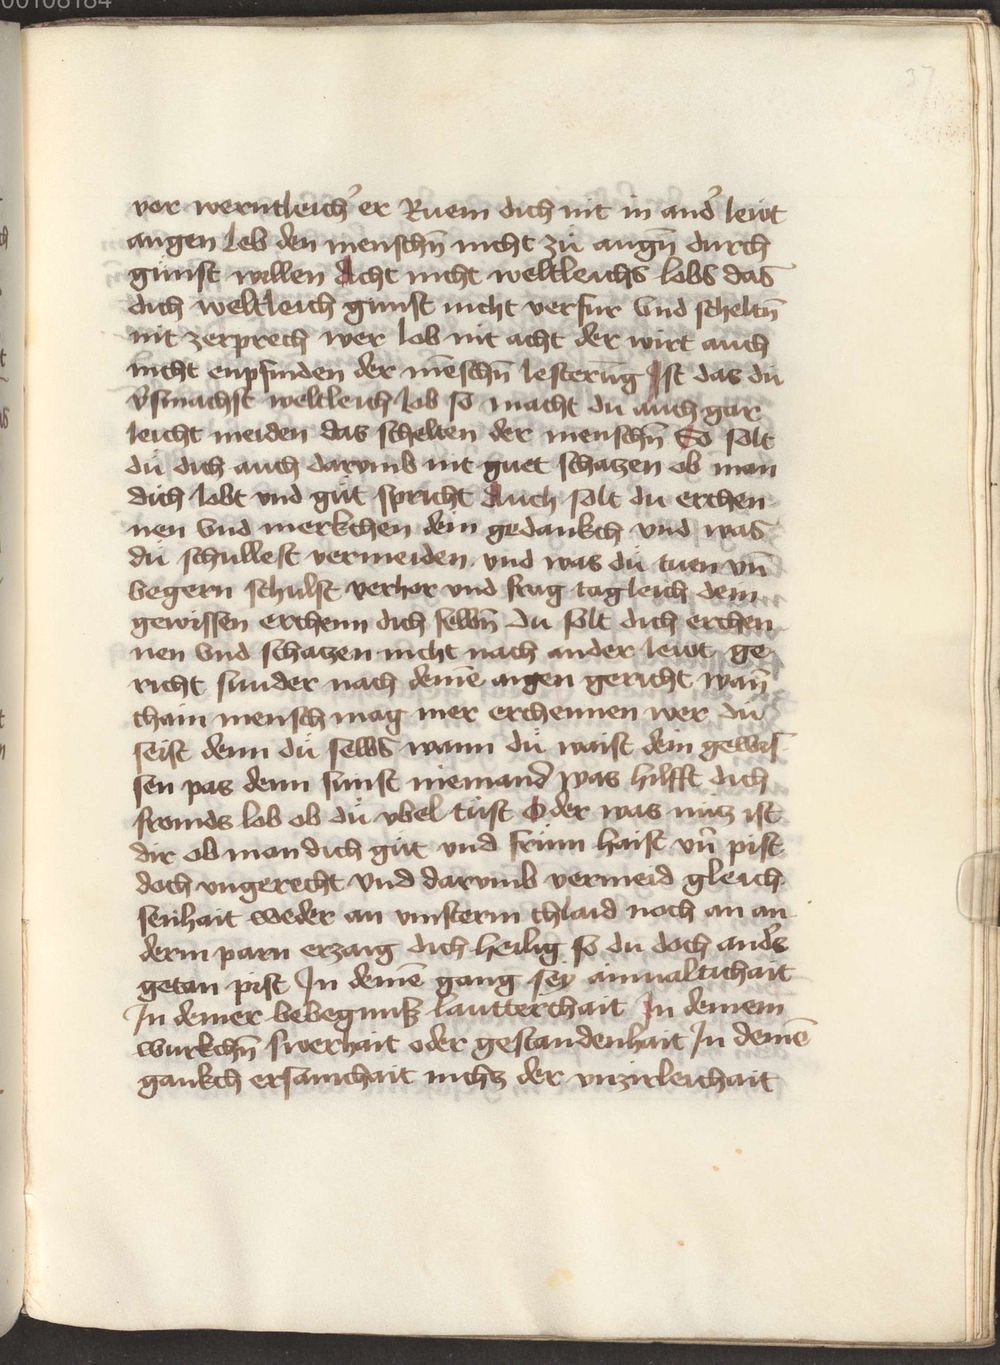 00108184
37
vor werntleich̕ er Ruem dich nit in and̕ lewt
augen Leb den menschn̄ nicht zů augn̄ durch
gunst willen Acht nicht weltleichs lobs das
dich weltleich gunst nicht verfur Vnd scheltn̄
nit zerprech wer lob nit acht der wirt auch
nicht enpfinden der mēschn̄ lesterūg Ist das du
v̕smachst weltleich lob so macht du auch gar
leicht meiden das schelten der menschn̄ So solt
dů dich auch darvmb nit guet schatzen ob man
dich lobt vnd gůt spricht Auch solt du erchen
nen Vnd merkchen dein gedankch vnd was
dů schullest vermeiden vnd was dů tuen vn̄
begern schulst verhor vnd frag tagleich dein
gewissen erchenn dich selbn̄ Du solt dich erchen
nen Vnd schatzen nicht nach ander lewt ge
richt sunder nach deinē aigen gericht wan̄
chain mensch mag mer erchennen wer dů
seist denn dů selbs wann dů waist dein gewis
sen pas denn sunst niemand̕ was hilfft dich
fromds lob ob dů vbel tůst Oder was nutz ist
dir ob man dich gůt vnd frůnn haist vn̄ pist
doch vngerecht Vnd darvmb vermeid gleich
senhait weder an vinsterm chlaid noch an an
derm parn erzaig dich heilig so du doch and̕s
getan pist In deinē gang sey ainualtichait
In deiner bebegnuß lautterchait In deinem
wurkchn̄ swerhait oder gestandenhait In deinē
gankch ersamchait nichs der vnzirleichait